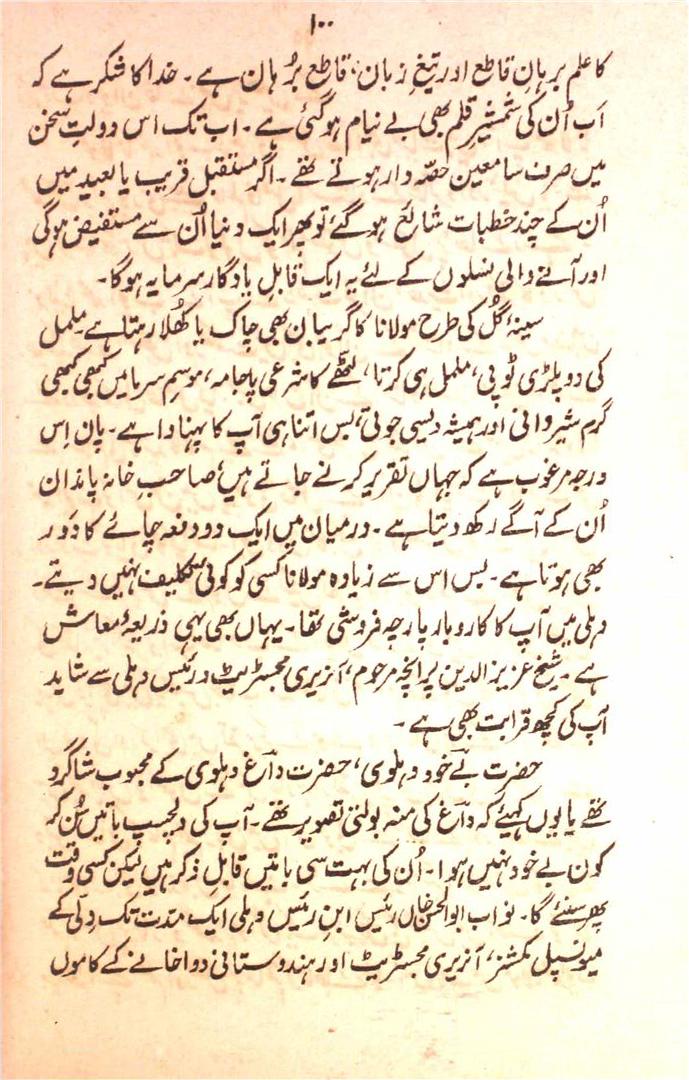 ۱۰۰
کا علم برہانِ قاطع اور تیغِ زبان، قاطع بُرہان ہے۔ خدا کا شکر ہے کہ
اَب اُن کی شمشیرِ قلم بھی بے نیام ہو گئی ہے۔ اب تک اس دولتِ سخن
میں صرف سامعین حصّہ دار ہوتے تھے۔ اگر مستقبل قریب یا بعید میں
اُن کے چند خطبات شائع ہو گئے تو پھر ایک دنیا اُن سے مستفیض ہوگی
اور آنے والی نسلوں کے لئے یہ ایک قابلِ یادگار سرمایہ ہوگا۔
سینۂ گل کی طرح مولانا کا گریبان بھی چاک یا کھُلا رہتا ہے۔ ململ
کی دو پلڑی ٹوپی، ململ ہی کرتا، لٹھے کا شرعی پاجامہ، موسمِ سرما میں کبھی کبھی
گرم شیروانی اور ہمیشہ دیسی جوتی، بس اتنا ہی آپ کا پہناوا ہے۔ پان اِس
درجہ مرغوب ہے کہ جہاں تقریر کرنے جاتے ہیں، صاحبِ خانہ پاندان
اُن کے آگے رکھ دیتا ہے۔ درمیان میں ایک دو دفعہ چائے کا دَور
بھی ہوتا ہے۔ بس اس سے زیادہ مولانا کسی کو کوئی تکلیف نہیں دیتے۔
دہلی میں آپ کا کاروبار پارچہ فروشی تھا۔ یہاں بھی یہی ذریعۂ معاش
ہے۔ شیخ عزیز الدین پراچہ مرحوم، آنریری مجسٹریٹ و رئیس دہلی سے شاید
آپ کی کچھ قرابت بھی ہے۔
حضرت بےخود دہلوی، حضرت داغ دہلوی کے محبوب شاگرد
تھے یا یوں کہیئے کہ داغ کی منہ بولتی تصویر تھے۔ آپ کی دلچسپ باتیں سُن کر
کون بے خود نہیں ہوا۔ اُن کی بہت سی باتیں قابلِ ذکر ہیں لیکن کسی وقت
پھر سنئے گا۔ نواب ابوالحسن خاں رئیس ابنِ رئیس دہلی ایک مدّت تک دِلّی کے
میونسپل کمشنر، آنریری مجسٹریٹ اور ہندوستانی دواخانے کے کاموں